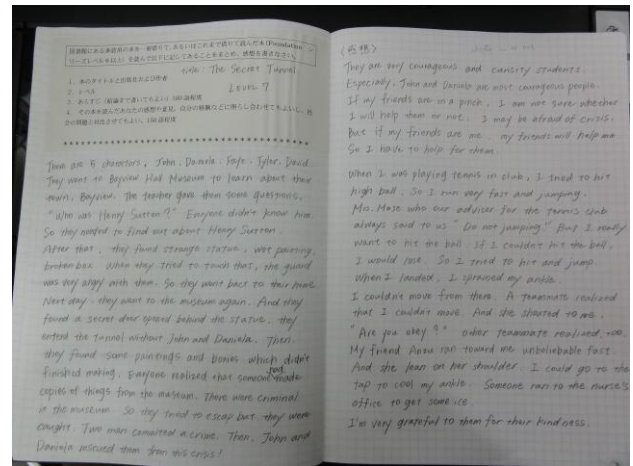 title: The Secret Tunnel
1. 本のタイトルと出版社および作者
2. レベル
Level 7
There are 5 characters, John, Daniela, Faye, Tyler, David
They went to Bayview Hall Museum to learn about their
town, Bayview. The teacher gave them some questions.
"Who was Henry Sutton?" Everyone didn't know him.
So they needed to find out about Henry Sutton.
After that, they found strange statue, wet painting,
broken box. When they tried to touch that, the guard
was very angry with them. So they want back to their home
Next day, they want to the museum again. And they
found a secret door opened behind the statue, they
enterd the tannol without John and Daniela. Then,
they found some paintings and boxes which didn't
finished making. Everyone realized that someone had made
copies of things from the museum. There were criminal
in the museum. So they tried to escap but they were
caught. Two man committed a crime. Then, John and
Daniela rescued them from this crisis!
(感想)
They are very courageous and curisity students.
Especially, John and Daniela are most courageous people.
If my friends are in a pinch, I am not sure whether
I will help them or not. I may be afraid of crisis.
But if my friends are me, my friends will help me
So I have to help for them.
When I was playing tennis in club, I tried to hit
high ball. So I run very fast and jumping.
Ms. Mase who our adviser for the tennis club
always said to us "Do not jumping." But I really
want to hit the ball. If I couldn't hit the ball,
I would lose. So I tried to hit and jump.
When I landed, I sprained my ankle.
I couldn't move from there. A teammate realized
that I couldn't move. And she shouted to me.
"Are you okey?" Other teammate realized, too.
My friend ran toward me unbeliebable fast.
And she lean on her shoulder. I could go to the
tap to cool my ankle. Someone ran to the nurse's
office to get some ice.
I'm very grateful to them for their kindness.